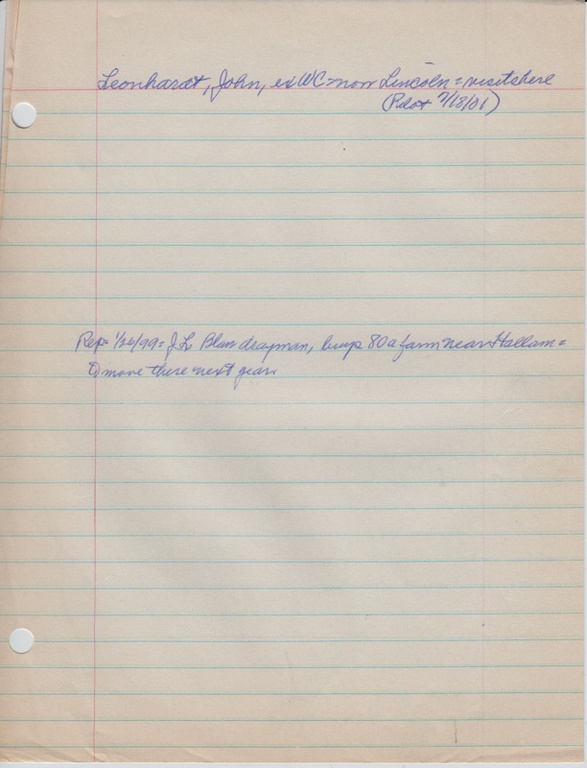 Leonhardt, John, ex WC = now Lincoln = visits here
(Pilot 7/18/01)
Rep = 1/26/99 = J L Blum drayman, buys 80 a farm near Hallam =
move there next year.